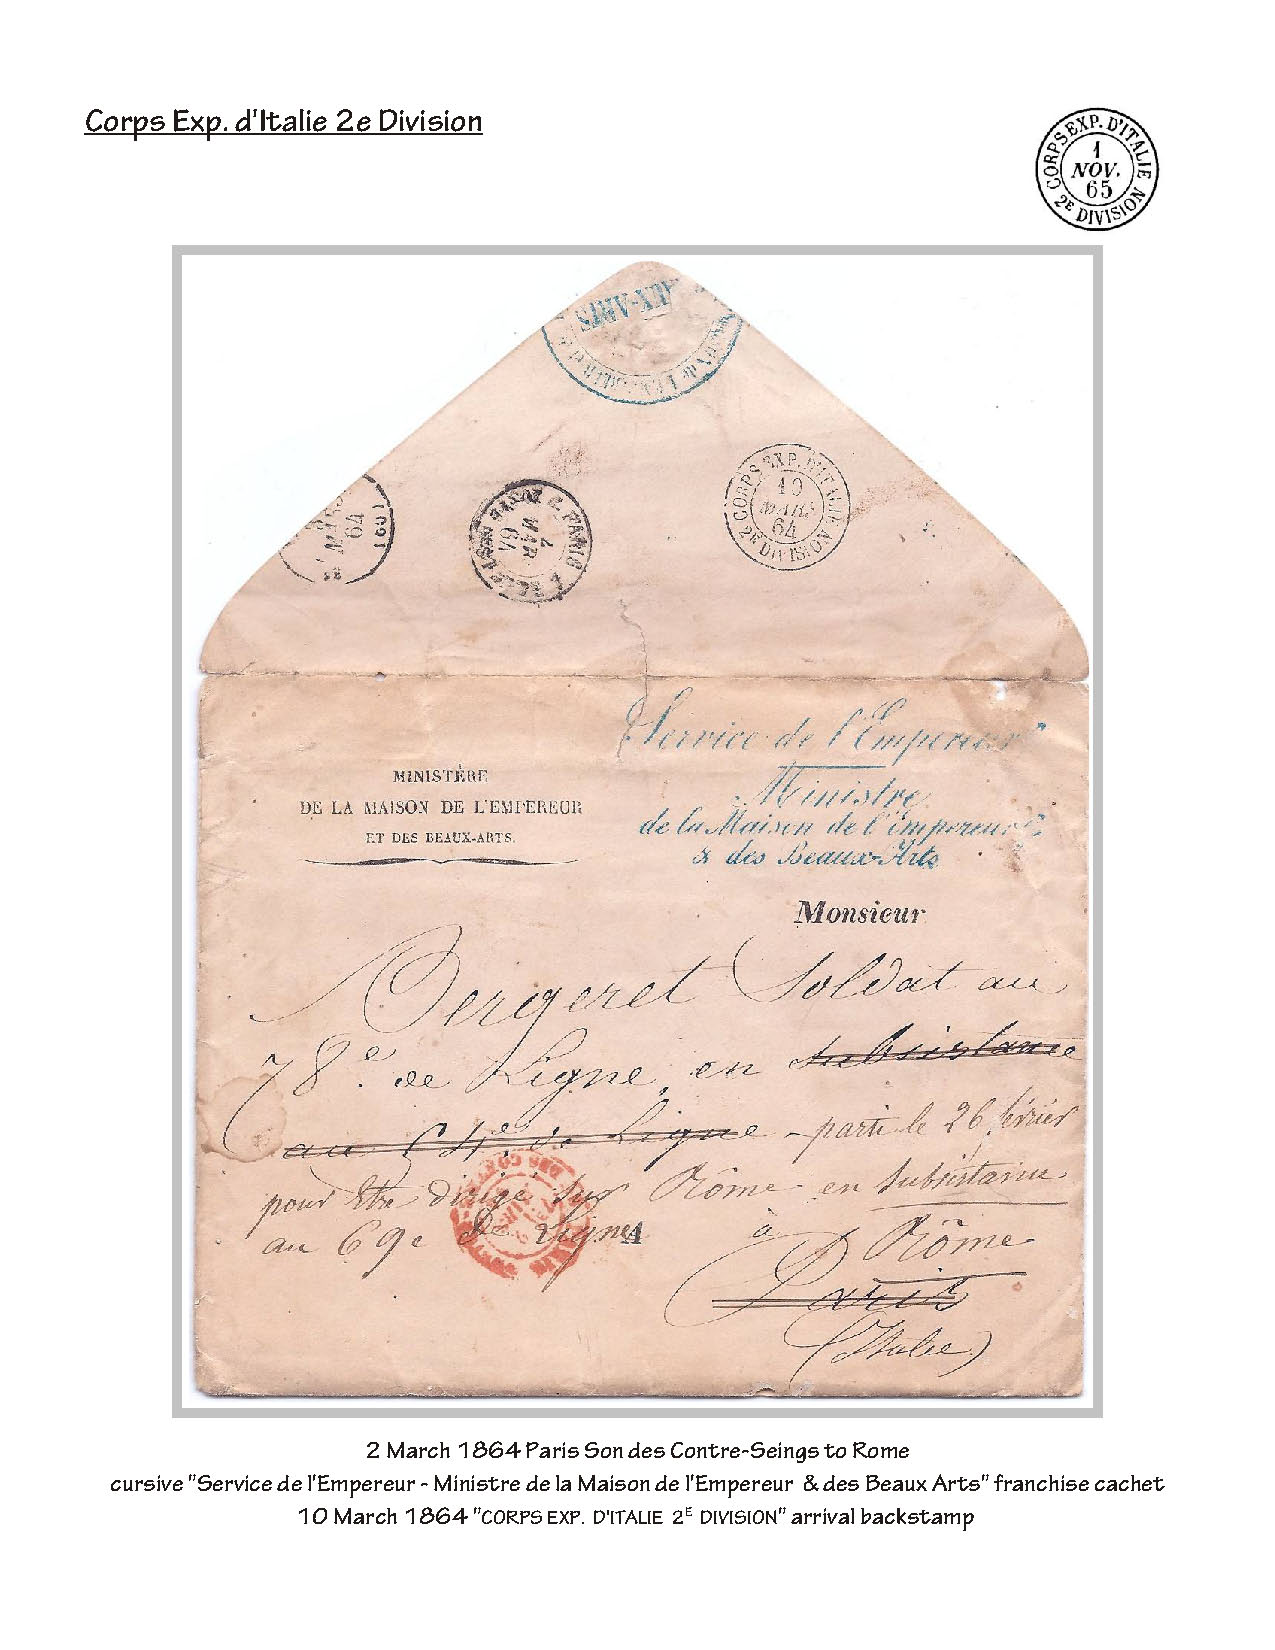 Corps Exp. d'Italie 2e Division
CORPS EXP. D'ITALIE
1
NOV.
65
2E DIVISION
AUX-ARTS
CORPS EXP. D'ITALIE
10
MARS
64
2E DIVISION
PARIS
MAR
64
64
Service de l'Empereur
Ministre
de la Maison de l'empereur
& des Beaux-Arts
MINISTÈRE
DE LA MAISON DE L'EMPEREUR
ET DES BEAUX-ARTS.
Monsieur
Bergeret Soldat au
78e de Ligne, en subsistance
au de Ligne - parti le 26 février
pour être dirigé sur Rôme en subsistance
au 69e de Ligne A
à Rôme
Paris
(Italie)
2 March 1864 Paris Son des Contre-Seings to Rome
cursive "Service de l'Empereur - Ministre de la Maison de l'Empereur & des Beaux Arts" franchise cachet
10 March 1864 "CORPS EXP. D'ITALIE 2E DIVISION" arrival backstamp